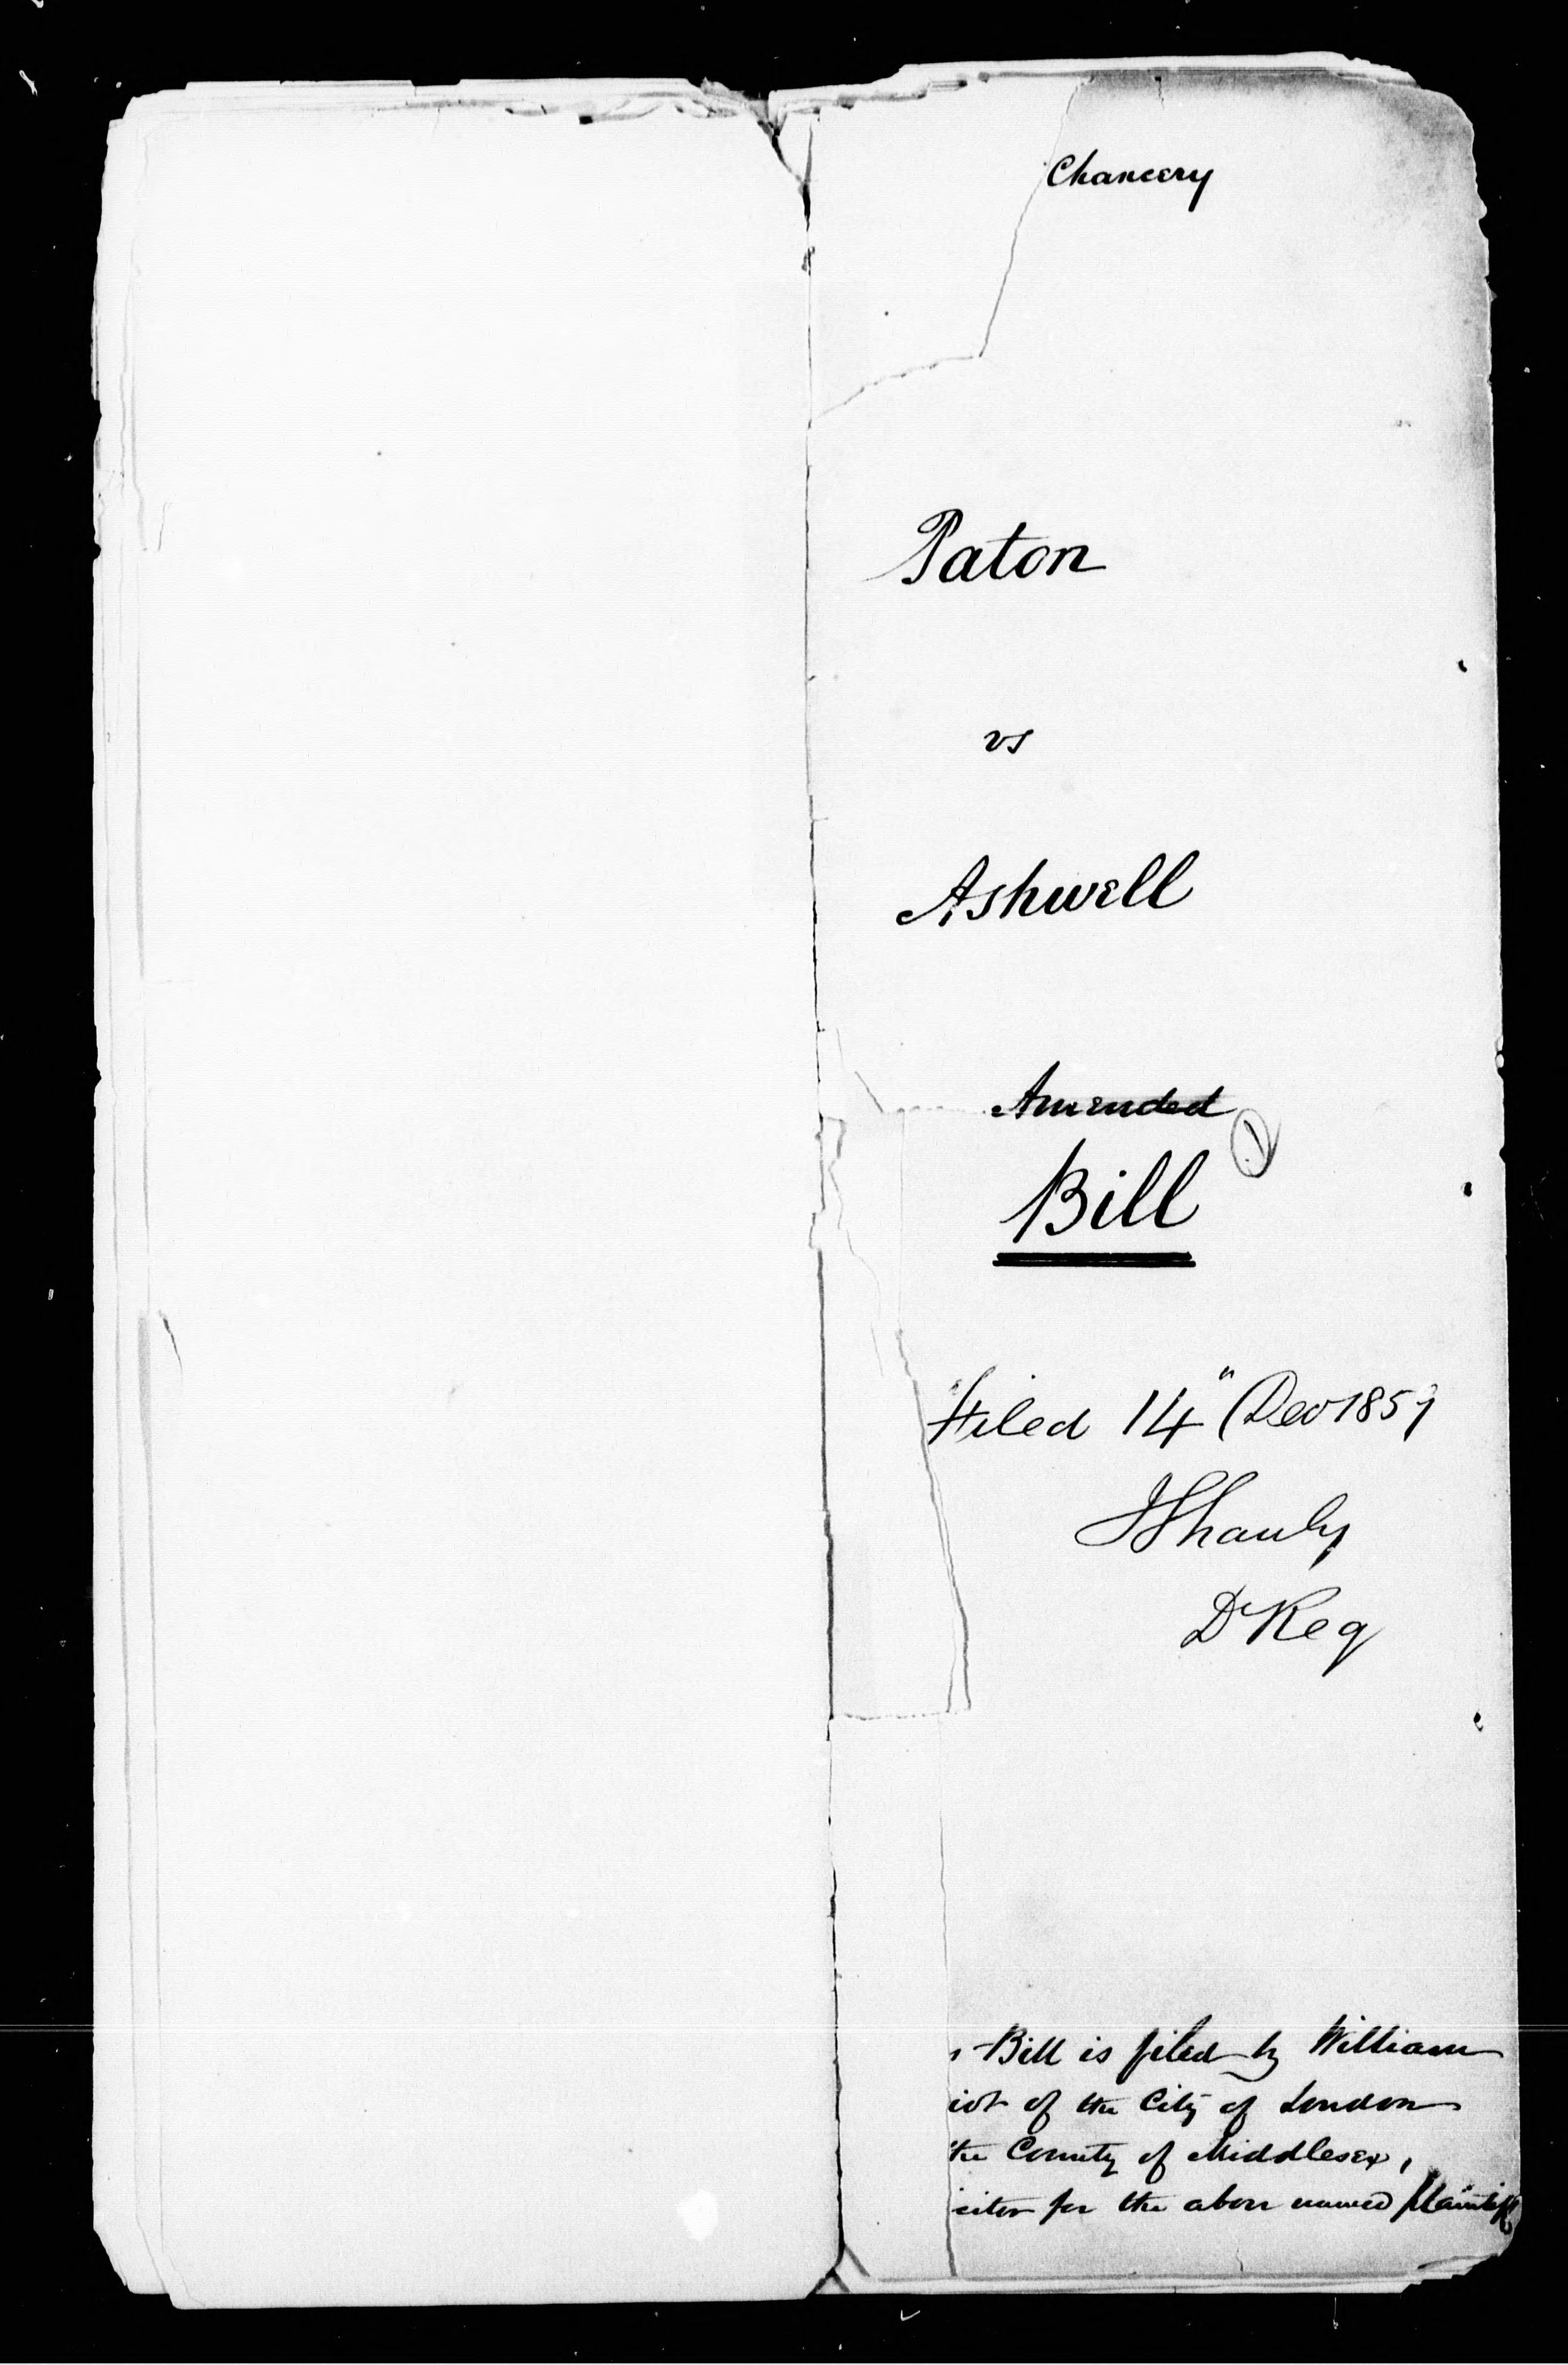 Chancery
Paton
vs
Ashwell
Amended
Bill
Filed 14" Dec 1859
J Shanly
D Reg
Bill is filed by William
iot of the City of London
the County of Middlesex,
citor for the above named plaintiff